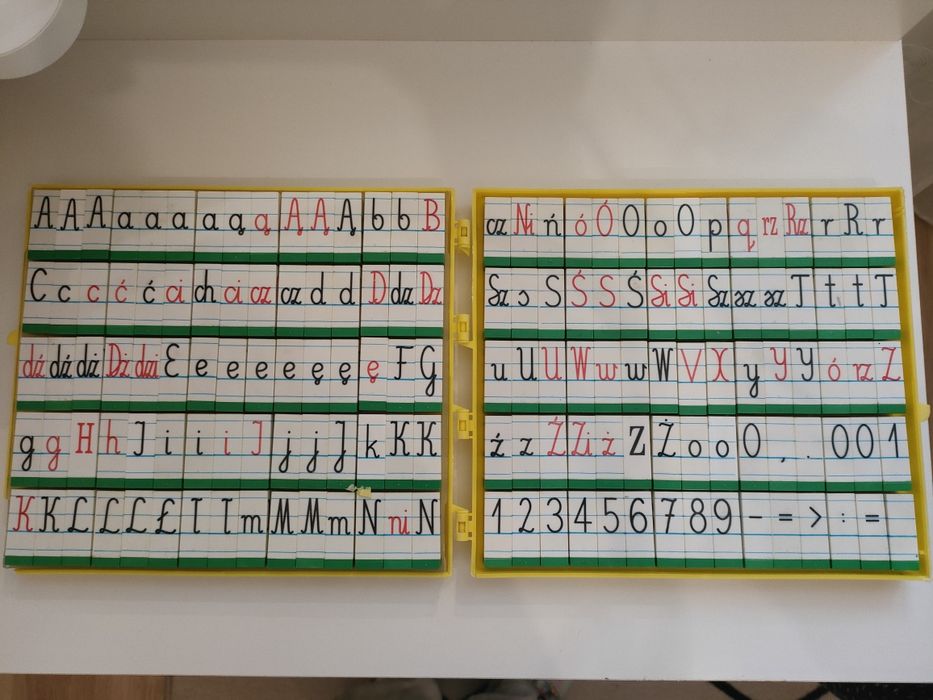 A A A a a a a ą ą Ą Ą Ą b b B
C c c ć ć ci ch ci cz cz d d D dz Dz
dź dź dż Dż dzi E e e e e ę ę ę F G
g g H h J i i i J j j J k K K
K K L L L Ł I I m M M m N ni N
cz Ni ń ó Ó O o O p q rz Rz r R r
Sz s S Ś S Ś Si Si Sz sz sz T t t T
u U U W w w W V X y Y Y ó rz Z
ź z Ż Zi ż Z Ż o o O , . 0 0 1
1 2 3 4 5 6 7 8 9 - = > : =